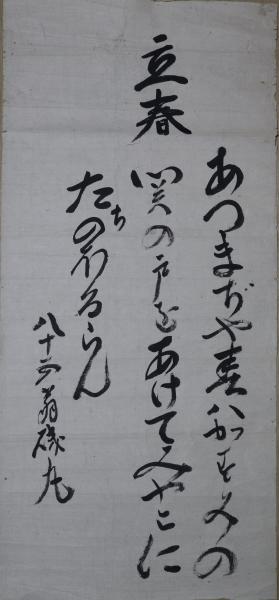 立春
あつまぢや春はかすみの
関の戸をあけてみやこに
たちのぼるらん
八十二翁磯丸